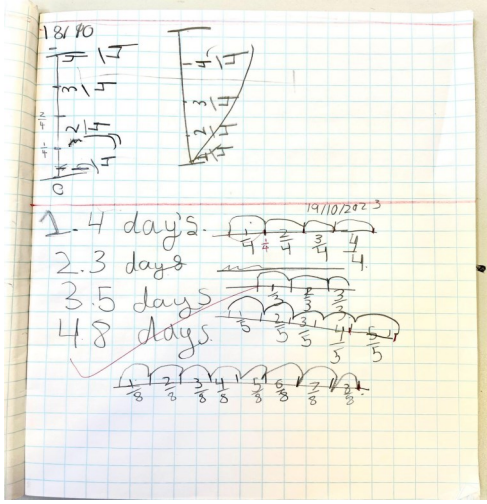 18/10
4/4
3/4
2/4
1/4
0
2/4
1/4
4/4
3/4
2/4
1/4
19/10/2023
1. 4 days.
1/4 1/4 2/4 3/4 4/4
2. 3 days
1/3 2/3 3/3
3. 5 days
1/5 2/5 3/5 4/5 5/5
4. 8 days.
1/8 2/8 3/8 4/8 5/8 6/8 7/8 8/8